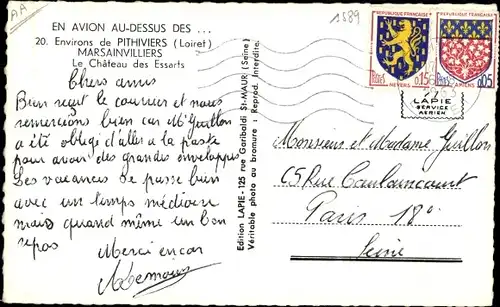 AA
EN AVION AU-DESSUS DES ...
20. Environs de PITHIVIERS (Loiret)
MARSAINVILLIERS
Le Château des Essarts
Chers amis
Bien reçu le courrier et nous
remercions bien car Mr Guillon
a été obligé d'aller à la poste
pour avoir des grandes enveloppes
Les vacances se passe bien
avec un temps médiocre
mais quand même un bon
repos
Merci encor
Edition LAPIE - 125 rue Garibaldi ST-MAUR (Seine)
Véritable photo au bromure : Reprod. Interdite.
1589
REPUBLIQUE FRANÇAISE
Postes 0,15
NEVERS
REPUBLIQUE FRANÇAISE
Postes 0,05
AMIENS
LAPIE
SERVICE
AERIEN
Monsieur et Madame Guillon
65 Rue Caulaincourt
Paris 18e
Seine